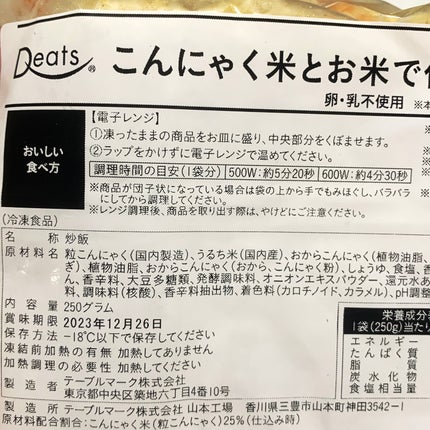 Deats®
こんにゃく米とお米で
卵・乳不使用 ※本
おいしい
食べ方
【電子レンジ】
①凍ったままの商品をお皿に盛り、中央部分をくぼませます。
②ラップをかけずに電子レンジで温めてください。
調理時間の目安(1袋分) 500W:約5分20秒 600W:約4分30秒
※商品が団子状になっている場合は袋の上から手でもみほぐし、バラバラ
にしてから調理してください。
※レンジ調理後、商品を取り出す際は、やけどにご注意ください。
(冷凍食品)
名称 炒飯
原材料名 粒こんにゃく(国内製造)、うるち米(国内産)、おからこんにゃく(植物油脂、
ぎ)、植物油脂、おからこんにゃく(おから、こんにゃく粉)、しょうゆ、食塩、香
ん、香辛料、大豆多糖類、発酵調味料、オニオンエキスパウダー、還元水あ
料、調味料(核酸)、香辛料抽出物、着色料(カロチノイド、カラメル)、pH調整
内容量 250グラム
賞味期限 2023年12月26日
保存方法 -18℃以下で保存してください
凍結前加熱の有無 加熱してありません
加熱調理の必要性 加熱してください
製造者 テーブルマーク株式会社
東京都中央区築地六丁目4番10号
製造所 テーブルマーク株式会社 山本工場 香川県三豊市山本町神田3542-1
原材料配合割合:こんにゃく米(粒こんにゃく)25%(仕込み時)
栄養成分
1袋(250g)当たり
エネルギー
たんぱく質
脂質
炭水化物
食塩相当量